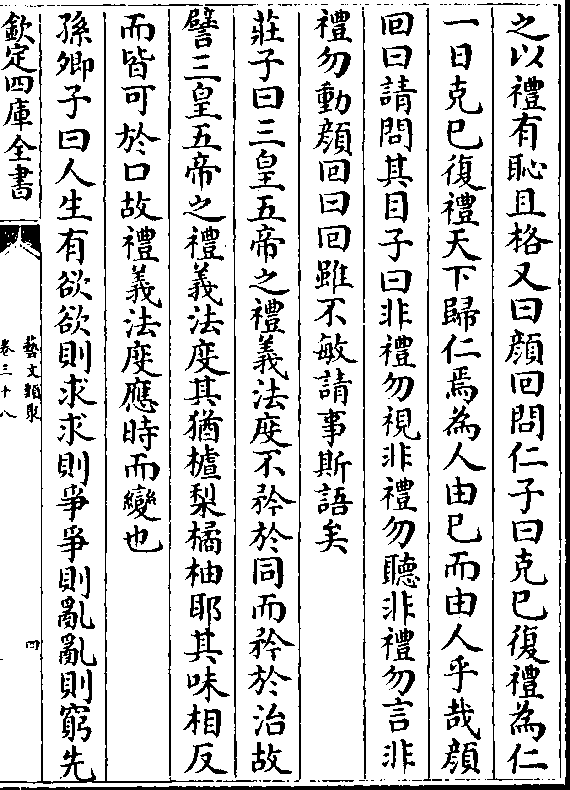 之以禮有恥且格又曰顔回問仁子曰克已復禮為仁
一日克已復禮天下歸仁焉為人由已而由人乎哉顔
回曰請問其目子曰非禮勿視非禮勿聽非禮勿言非
禮勿動顔回曰回雖不敏請事斯語矣
莊子曰三皇五帝之禮義法度不矜於同而矜於治故
譬三皇五帝之禮義法度其猶樝梨橘柚耶其味相反
而皆可於口故禮義法度應時而變也
孫卿子曰人生有欲欲則求求則爭爭則亂亂則窮先
欽定四庫全書
藝文類聚
卷三十八
四